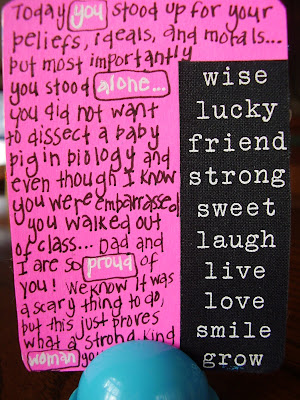 Today you stood up for your
beliefs, ideals, and morals...
but most importantly
you stood alone...
you did not want
to dissect a baby
pig in biology and
even though I know
you were embarrassed
you walked out
of class... Dad and
I are so proud of
you! We know it was
a scary thing to do,
but this just proves
what a strong, kind
woman you
wise
lucky
friend
strong
sweet
laugh
live
love
smile
grow